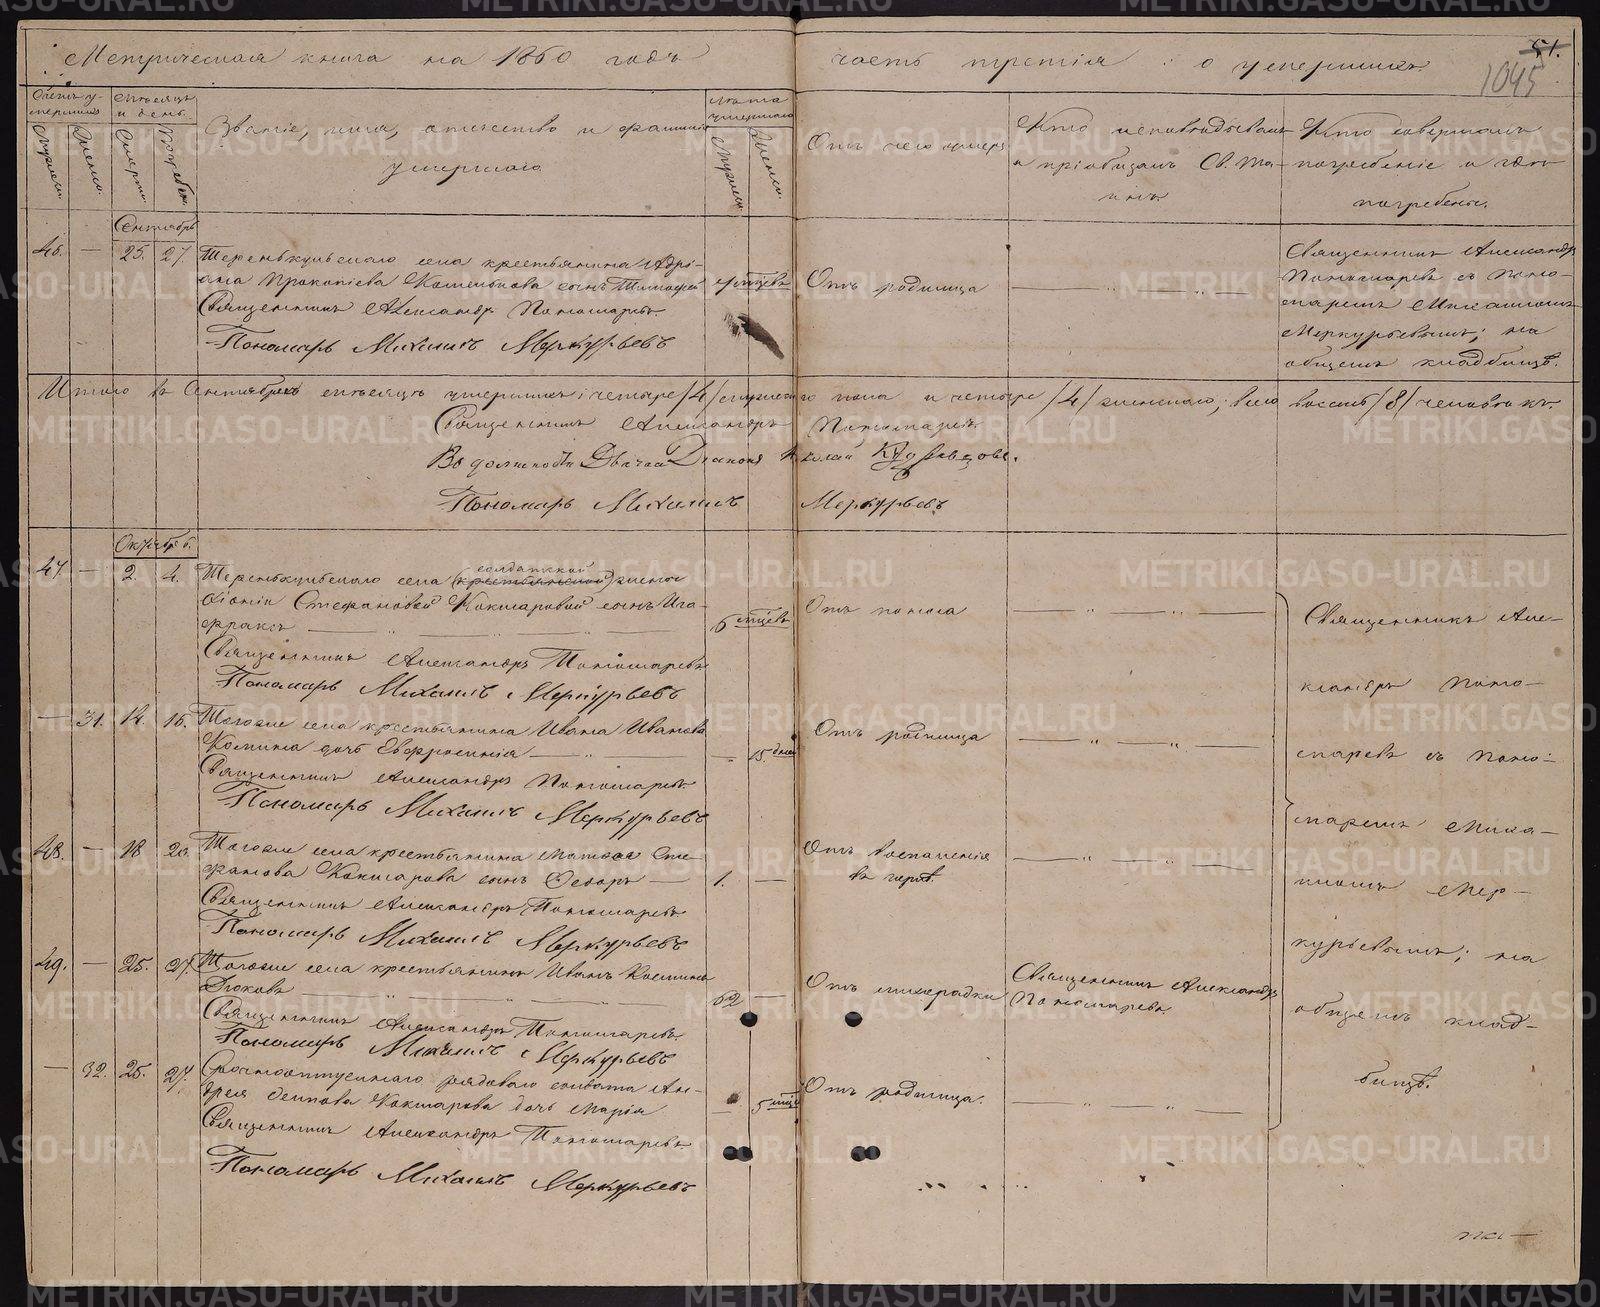 Метрическая книга на 1860 годъ
часть третія о умершихъ
51.
1045
Счетъ умершихъ
Мужеска.
Женска.
Мѣсяцъ и день.
Смерти.
Погребен.
Званіе, имя, отчество и фамилія
умершаго
Лѣта умершаго
Мужеска.
Женска.
Отъ чего умеръ
Кто исповѣдывалъ
и пріобщалъ Св. Та-
инъ.
Кто совершалъ
погребеніе и гдѣ
погребены.
Сентябрь
46. — 25. 27.
Теренькульскаго села крестьянина Адрі-
ана Прокопіева сынъ Тимофей
Священникъ Александръ Пономаревъ
Пономарь Михаилъ Меркурьевъ
мѣсяцевъ
Отъ родимца
Священникъ Александръ
Пономаревъ съ поно-
маремъ Михаиломъ
Меркурьевымъ; на
общемъ кладбищѣ.
Итого въ Сентябрѣ мѣсяцѣ умершихъ: четыре /4/ мужескаго пола и четыре /4/ женскаго; всего восемь /8/ человѣкъ.
Священникъ Александръ Пономаревъ
Въ должности Дьячка Діаконъ Николай
Пономарь Михаилъ Меркурьевъ.
Октябрь.
47. — 2. 4.
солдатской
Теренькульскаго села (крестьянской) жены
Стефановой Кокшаровой сынъ
Священникъ Александръ Пономаревъ
Пономарь Михаилъ Меркурьевъ
6 мѣсяцевъ
Отъ поноса
— 31. 14. 16.
Тогоже села крестьянина Ивана Иванова
дочь Евфросинія
Священникъ Александръ Пономаревъ
Пономарь Михаилъ Меркурьевъ
15 дней
Отъ родимца
48. — 18 20.
Тогоже села крестьянина Сте-
фанова Кокшарова сынъ Ѳедоръ
Священникъ Александръ Пономаревъ
Пономарь Михаилъ Меркурьевъ
1. —
Отъ воспаленія
въ горлѣ.
49. — 25. 27.
Тогоже села крестьянинъ Иванъ
Священникъ Александръ Пономаревъ.
Пономарь Михаилъ Меркурьевъ
62 —
Отъ лихорадки
Священникъ Александръ
Пономаревъ.
— 32. 25. 27.
рядоваго солдата Ан-
дрея Осипова Кокшарова дочь Марія
Священникъ Александръ Пономаревъ
Пономарь Михаилъ Меркурьевъ
5 мѣсяц.
Отъ родимца.
Священникъ Але-
ксандръ Поно-
маревъ съ поно-
маремъ Миха-
иломъ Мер-
курьевымъ; на
общемъ клад-
бищѣ.
METRIKI.GASO-URAL.RU